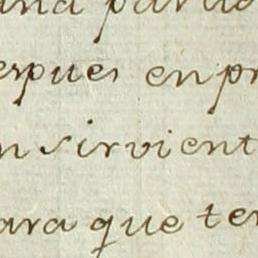 una
espues en pr
n sirvient
ara que ter